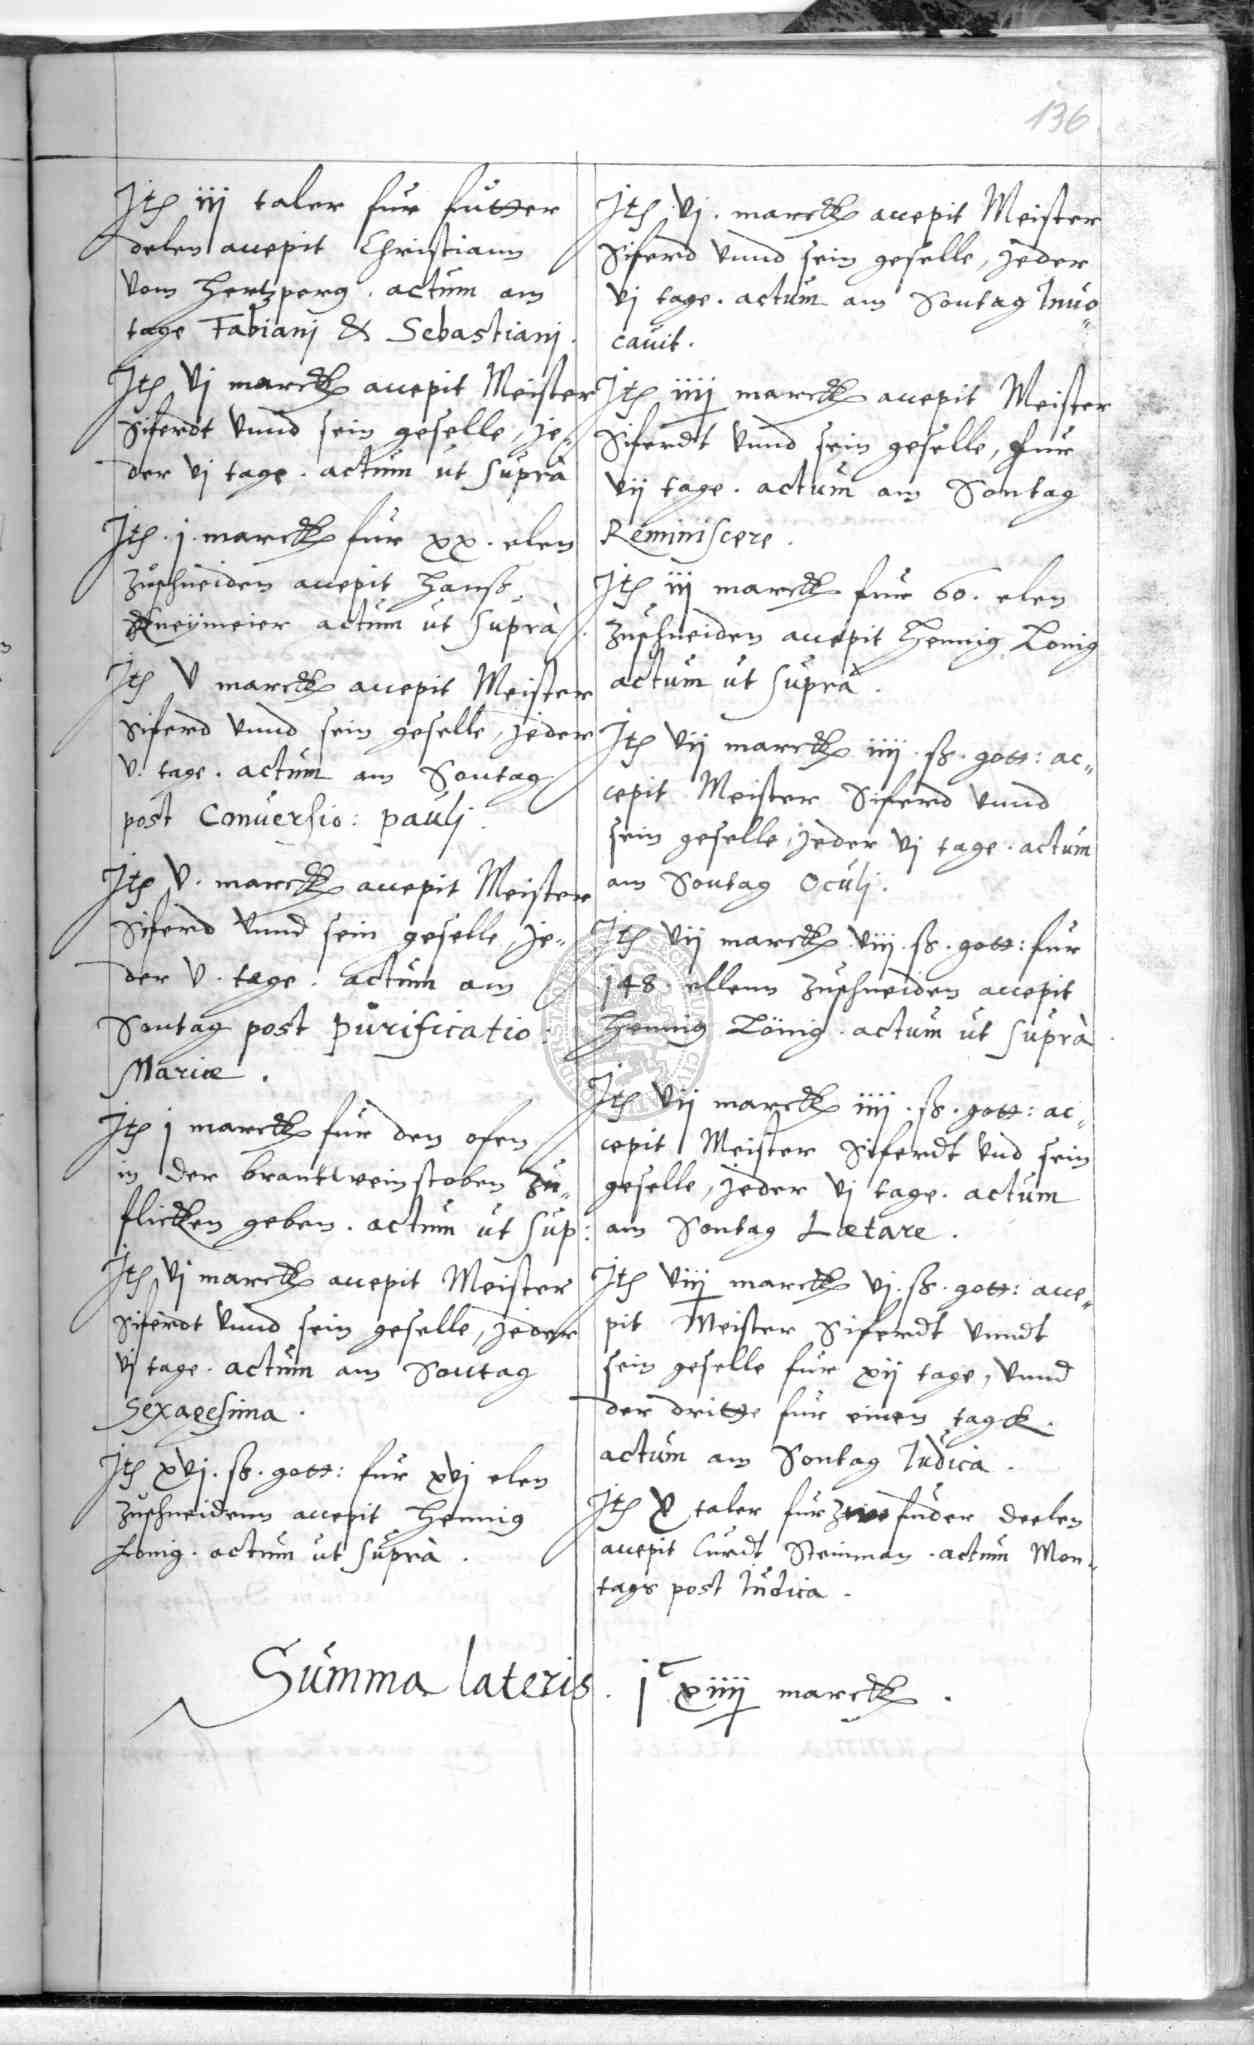 136
Jtem iij taler fur futter
delen accepit Christiann
vom Hertzperg . actum am
tage Fabianj & Sebastianj .
Jtem vj marck accepit Meister
Siferdt vnnd sein geselle, je-
der vj tage . actum ut suprà
Jtem . j . marck fur xx . elen
zuschneiden accepit Hanß
actum ut suprà .
Jtem v marck accepit Meister
Siferd vnnd sein geselle, jeder
v. tage . actum am Sontag
post Conuersio: paulj .
Jtem v . marck accepit Meister
Siferd vnnd sein geselle, je-
der v . tage . actum am
Sontag post purificatio:
Mariæ .
Jtem j marck fur den ofen
in der brantweinstoben zu-
flicken geben . actum ut sup:
Jtem vj marck accepit Meister
Siferdt vnnd sein geselle, jeder
vj tage . actum am Sontag
Sexagesima .
Jtem xvj . ß . gott: fur xvj elen
zuschneidenn accepit Hennig
Lonig . actum ut suprà .
Jtem vj . marck accepit Meister
Siferd vnnd sein geselle, jeder
vj tage . actum am Sontag Inuo-
cauit .
Jtem iiij marck accepit Meister
Siferdt vnnd sein geselle, fur
vij tage . actum am Sontag
Reminiscere .
Jtem iij marck fur 60 . elen
zuschneiden accepit Hennig Lonig
actum ut suprà .
Jtem vij marck iiij . ß . gott: ac-
cepit Meister Siferd vnnd
sein geselle, jeder vj tage . actum
am Sontag Oculj .
Jtem vij marck viij . ß . gott: fur
148 . ellenn zuschneiden accepit
Hennig Lönig . actum ut suprà .
Jtem vij marck iiij . ß . gott: ac-
cepit Meister Siferdt vnd sein
geselle, jeder vj tage . actum
am Sontag Lætare .
Jtem viij marck vj . ß . gott: acce-
pit Meister Siferdt vnndt
sein geselle fur xij tage, vnnd
der dritte fur einen tagk .
actum am Sontag Iudica .
Jtem v taler fur zwe fuder deelen
accepit Curdt Steinman . actum Mon-
tags post Iudica .
Summa lateris . jc xiiij marck .